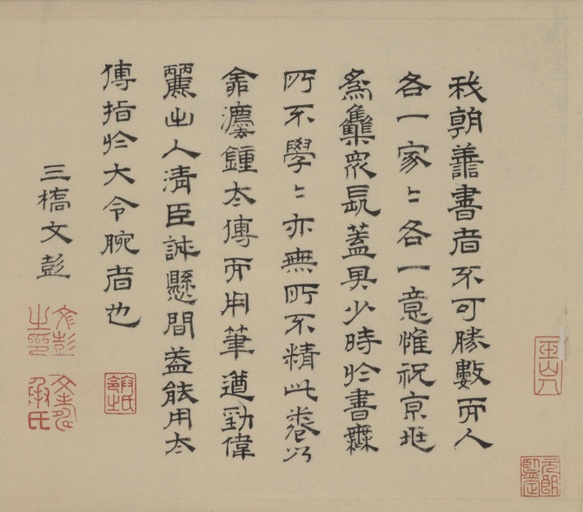 我朝善書者不可勝數而人
各一家〻各一意惟祝京兆
爲集衆長蓋其少時於書無
所不學〻亦無所不精此卷以
灋鍾太傅而用筆遒勁偉
麗出入清臣誠懸間蓋能用太
傅指於大令腕者也
三橋文彭
文彭之印
文壽承氏